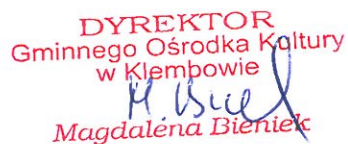 DYREKTOR
Gminnego Ośrodka Kultury
w Klembowie
Magdalena Bieniek